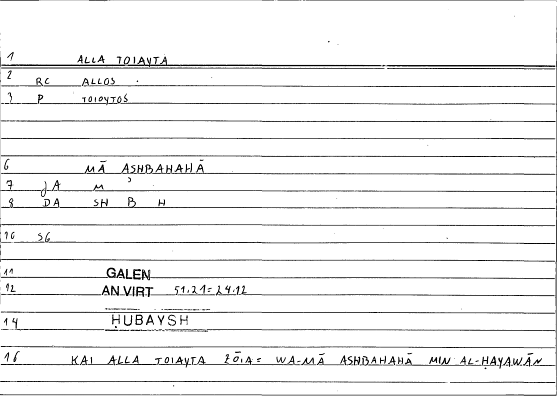 1 ALLA TOIAYTA
2 RC ALLOS
3 P TOIOYTOS
6 MĀ ASHBAHAHĀ
7 JA M ʾ
8 DA SH B H
10 SG
11 GALEN
12 AN VIRT 51.21= 24.12
14 ḤUBAYSH
16 KAI ALLA TOIAYTA ZŌIA= WA-MĀ ASHBAHAHĀ MIN AL-ḤAYAWĀN